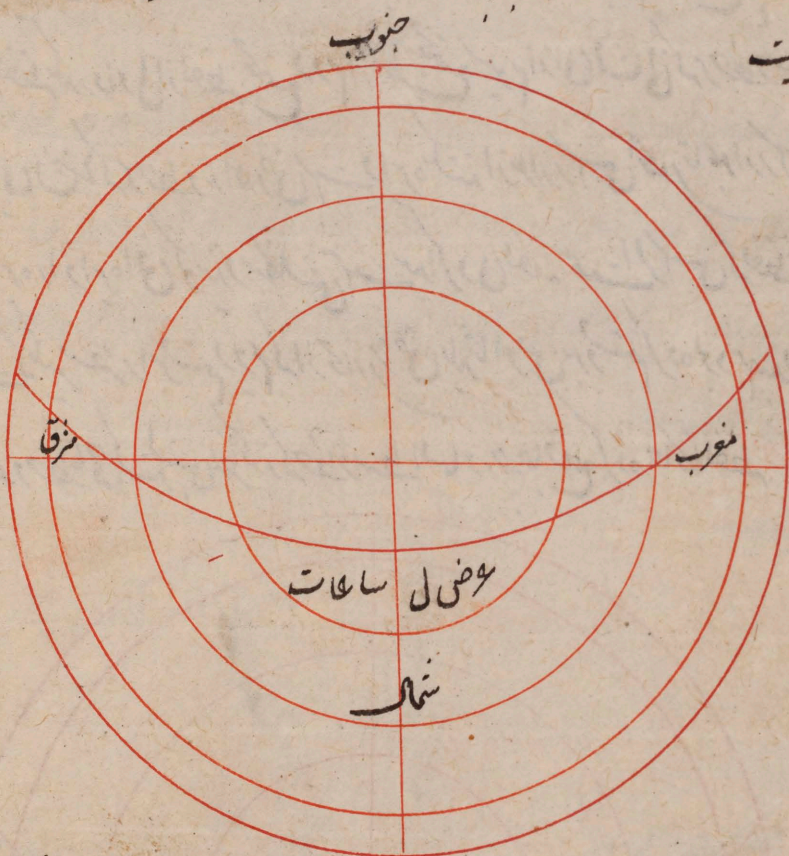 جنوب
مشرق
مغرب
عرض ل ساعات
شمال